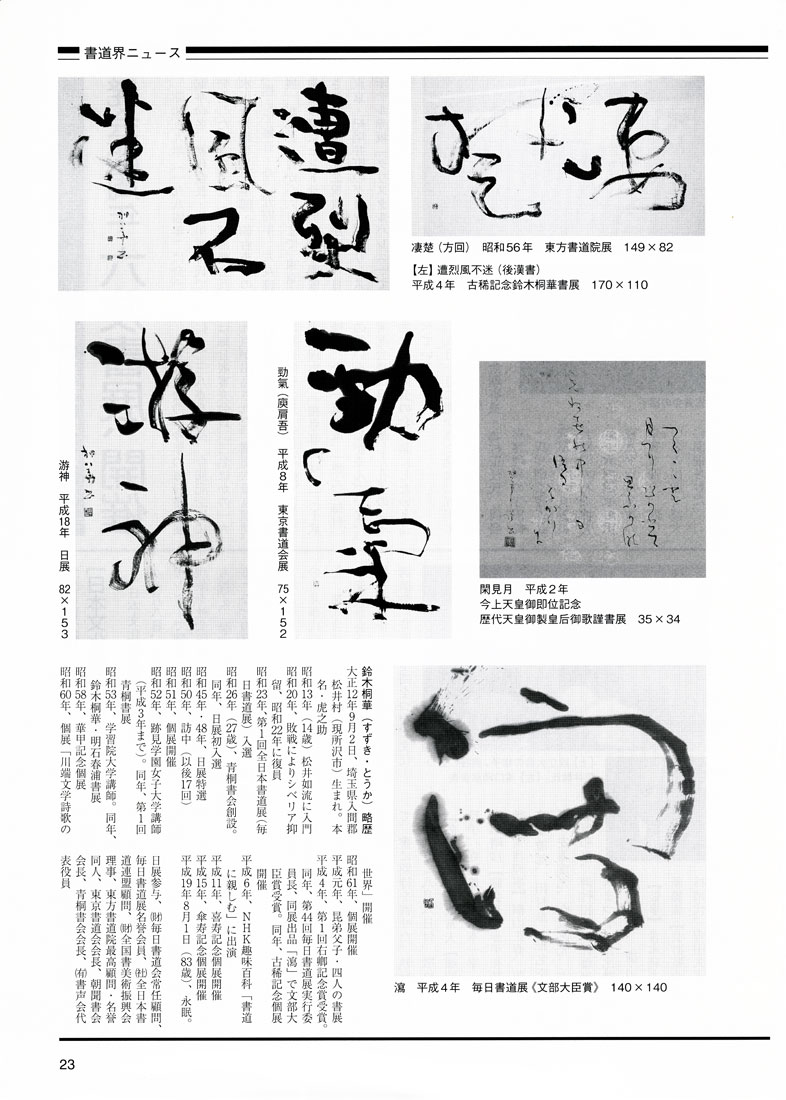 書道界ニュース
凄楚（方回）　昭和56年　東方書道院展　149×82
【左】遭烈風不迷（後漢書）
平成４年　古稀記念鈴木桐華書展　170×110
勁氣（庾肩吾）　平成８年　東京書道会展　75×152
游神　平成18年　日展　82×153
閑見月　平成２年
今上天皇御即位記念
歴代天皇御製皇后御歌謹書展　35×34
瀉　平成４年　毎日書道展《文部大臣賞》　140×140
鈴木桐華（すずき・とうか）略歴
大正12年９月２日、埼玉県入間郡
松井村（現所沢市）生まれ。本
名・虎之助
昭和13年（14歳）松井如流に入門
昭和20年、敗戦によりシベリア抑
留、昭和22年に復員
昭和23年、第１回全日本書道展（毎
日書道展）入選
昭和26年（27歳）、青桐書会創設。
同年、日展初入選
昭和45年・48年、日展特選
昭和50年、訪中（以後17回）
昭和51年、個展開催
昭和52年、跡見学園女子大学講師
（平成３年まで）。同年、第１回
青桐書展
昭和53年、学習院大学講師。同年、
鈴木桐華・明石春浦書展
昭和58年、華甲記念個展
昭和60年、個展「川端文学詩歌の
世界」開催
昭和61年、個展開催
平成元年、昆弟父子・四人の書展
平成４年、第１回右卿記念賞受賞。
同年、第44回毎日書道展実行委
員長、同展出品「瀉」で文部大
臣賞受賞。同年、古稀記念個展
開催
平成６年、ＮＨＫ趣味百科「書道
に親しむ」に出演
平成11年、喜寿記念個展開催
平成15年、傘寿記念個展開催
平成19年８月１日（83歳）、永眠。
日展参与、㈶毎日書道会常任顧問、
毎日書道展名誉会員、㈳全日本書
道連盟顧問、㈶全国書美術振興会
理事、東方書道院最高顧問・名誉
同人、東京書道会会長、朝聞書会
会長、青桐書会会長、㈲書声会代
表役員
23